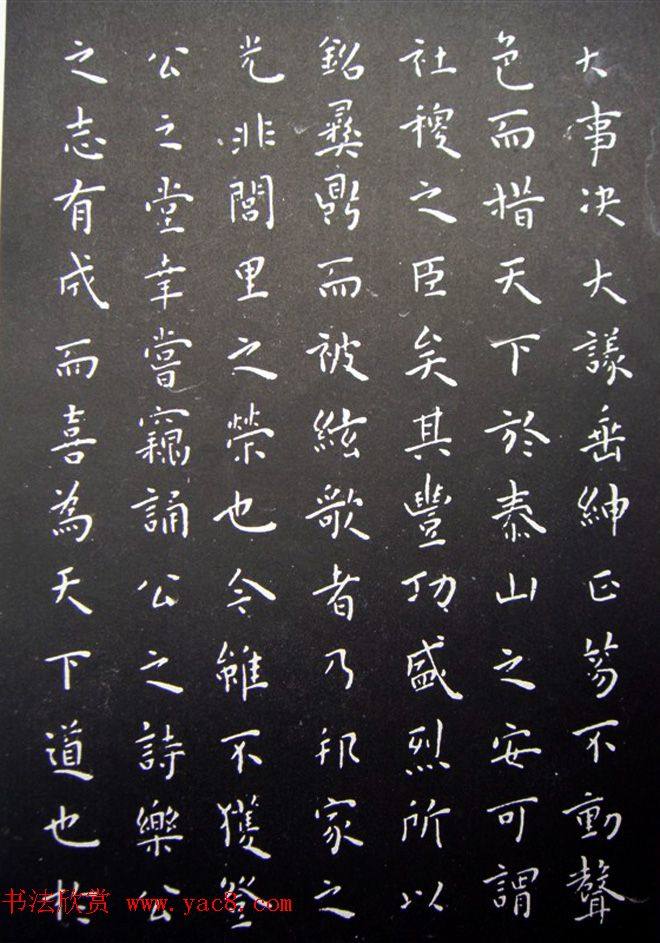 大事决大議垂紳正笏不動聲
色而措天下於泰山之安可謂
社稷之臣矣其豐功盛烈所以
銘彝鼎而被絃歌者乃邦家之
光非閭里之榮也余雖不獲登
公之堂幸嘗竊誦公之詩樂公
之志有成而喜為天下道也
书法欣赏 www.yac8.com